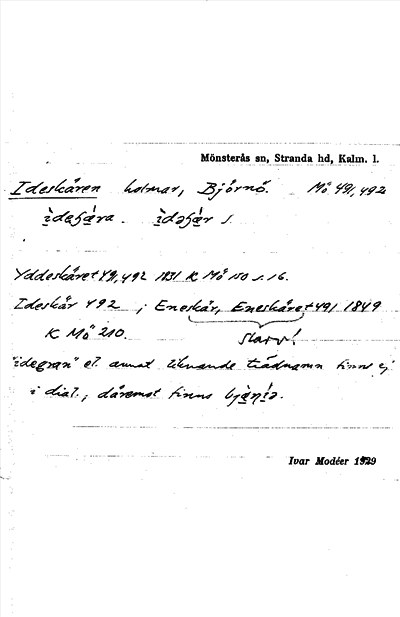 Mönsterås sn, Stranda hd, Kalm. l.
Ideskåren holmar, Björnö. Mö 491, 492
Yddeskäret 491, 492 1831 K Mö 150 s. 16.
Ideskär 492 ; Eneskär, Eneskäret 491 1849
K Mö 210. skarv!
"idegran" el. annat liknande trädnamn finns ej
i dial.; däremot finns
Ivar Modéer 1929